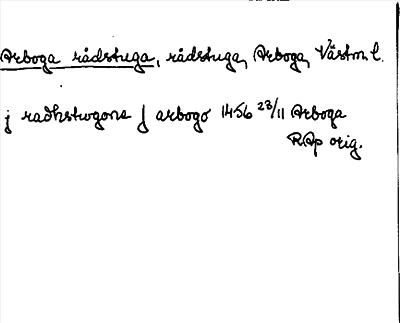 Arboga rådstuga, rådstuga, Arboga, Västm. l.
j radhstwgone j arbogo 1456 23/11 Arboga
RAp orig.